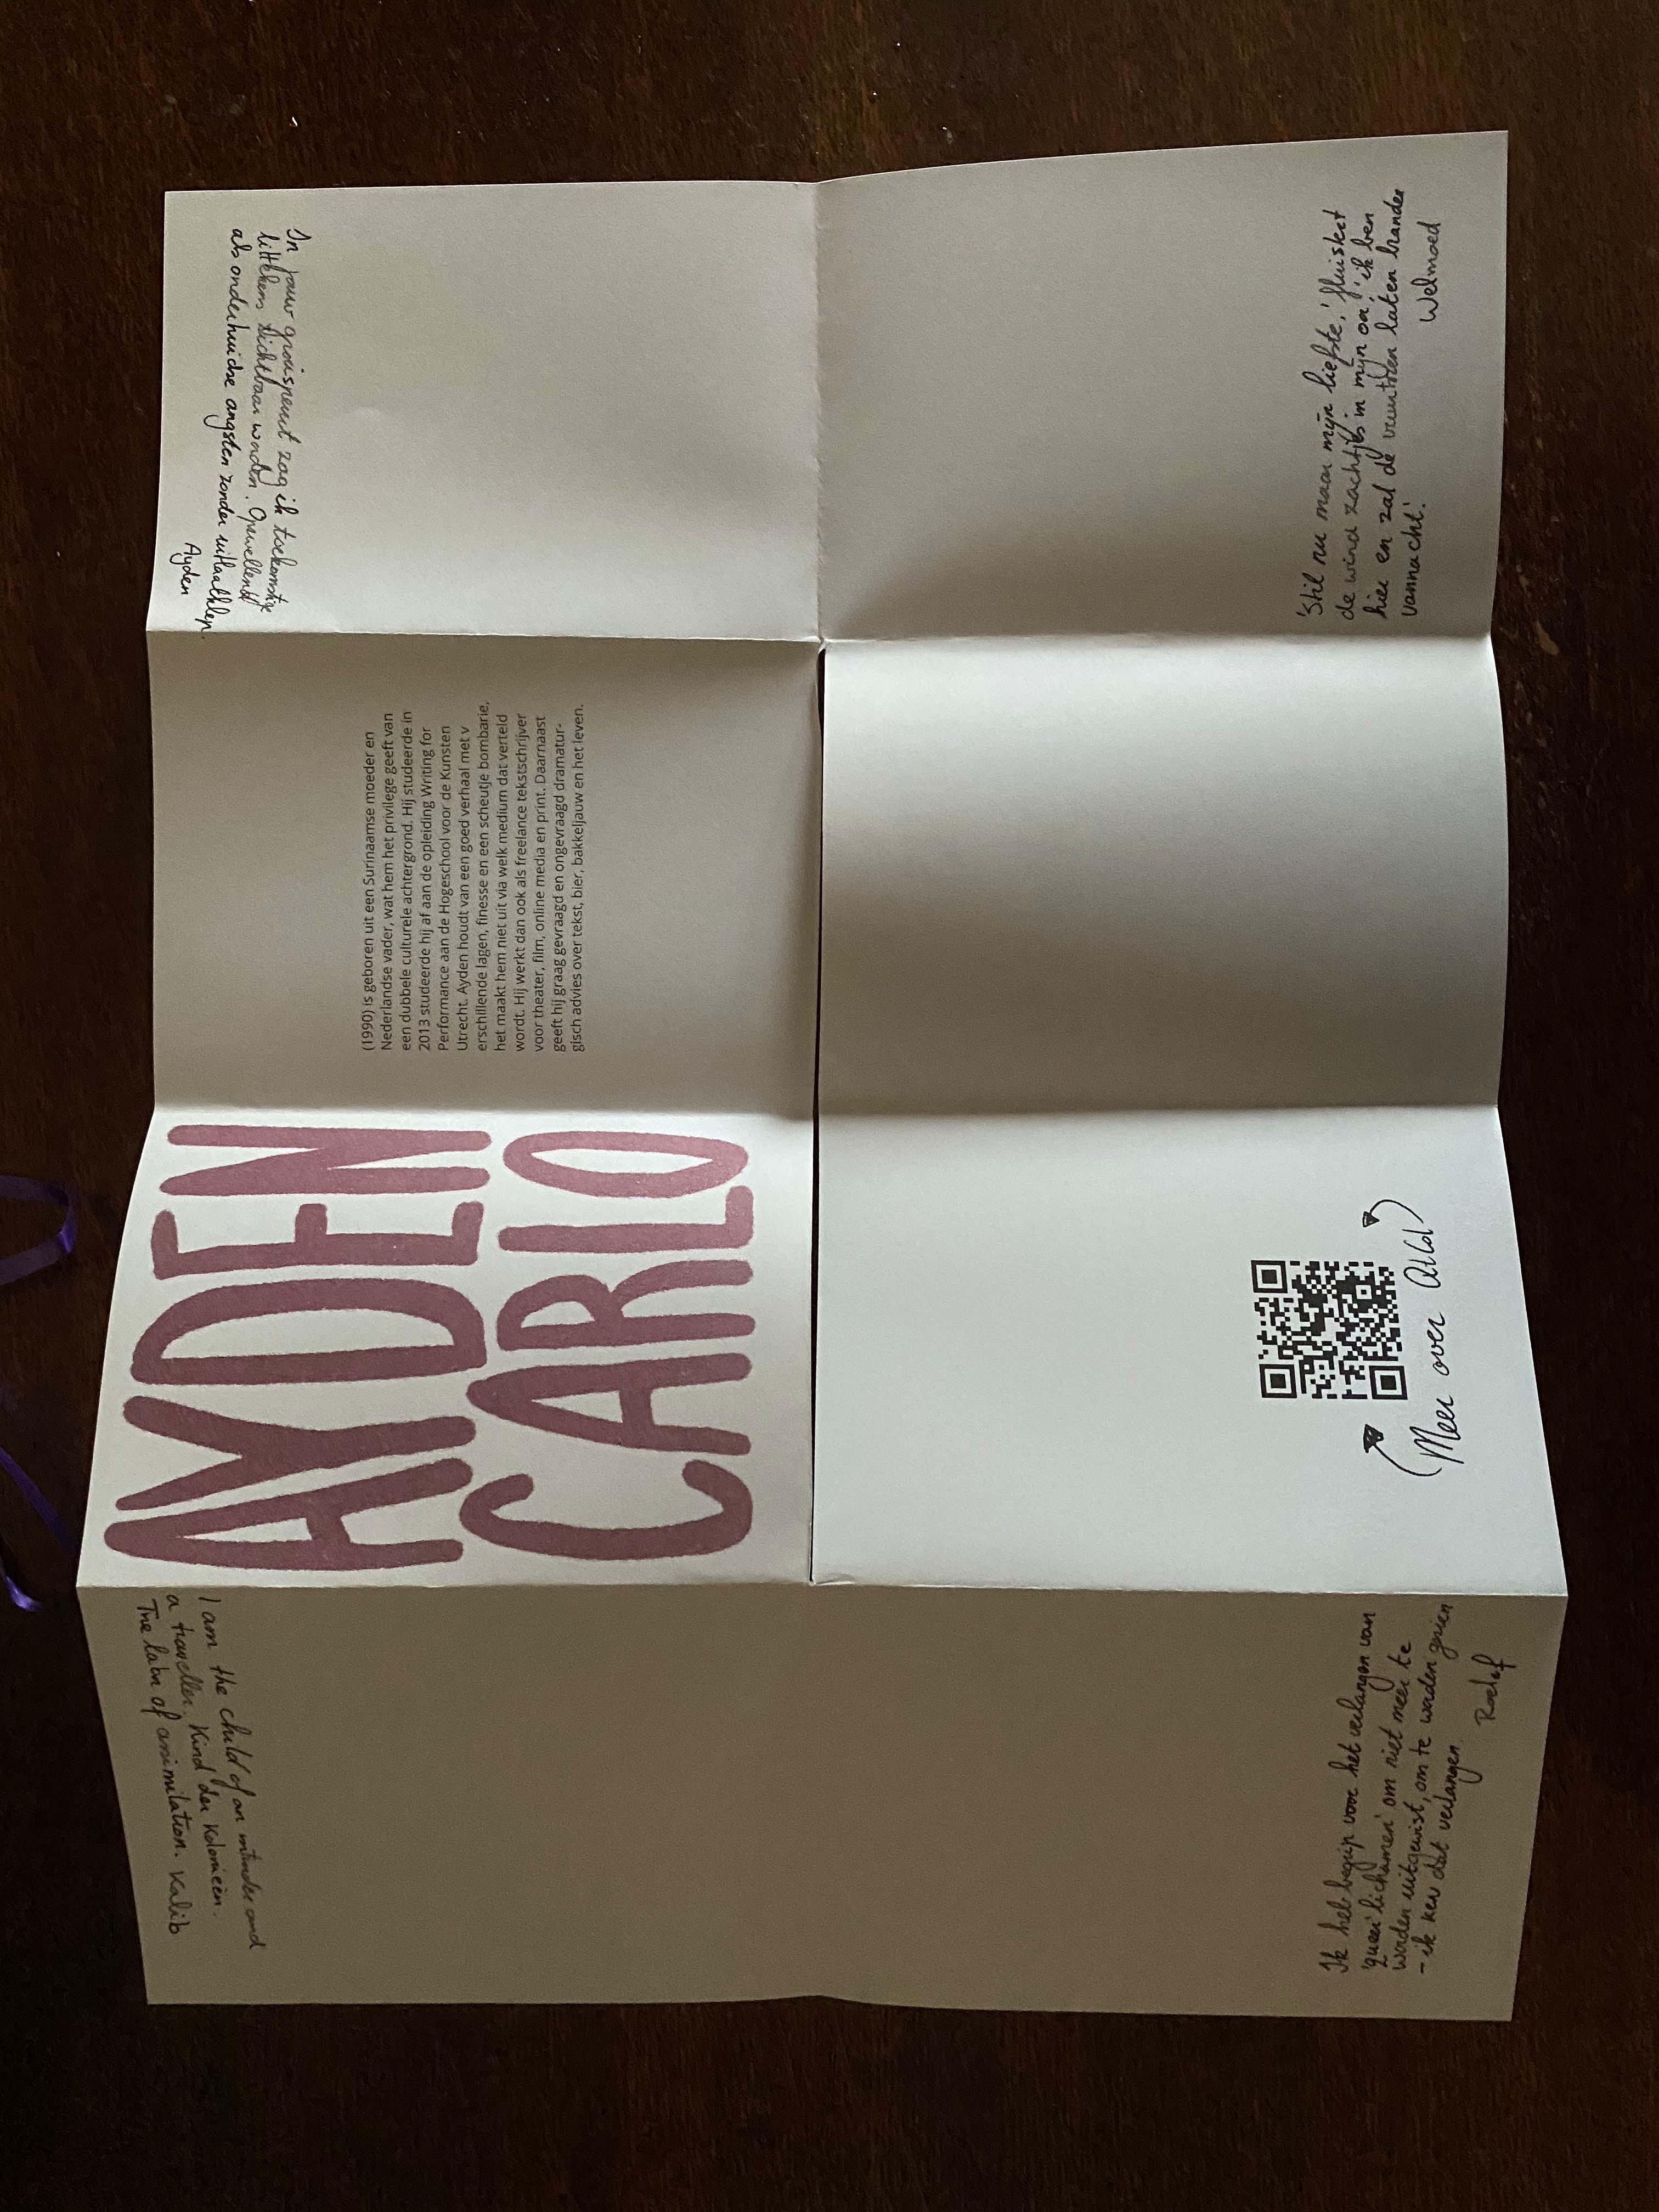 I am the child of an intruder and
a traveller. Kind der Koloniën.
The labn of assimilation. Kalib
AYDEN
CARLO
(1990) is geboren uit een Surinaamse moeder en
Nederlandse vader, wat hem het privilege geeft van
een dubbele culturele achtergrond. Hij studeerde in
2013 studeerde hij af aan de opleiding Writing for
Performance aan de Hogeschool voor de Kunsten
Utrecht. Ayden houdt van een goed verhaal met v
erschillende lagen, finesse en een scheutje bombarie,
het maakt hem niet uit via welk medium dat verteld
wordt. Hij werkt dan ook als freelance tekstschrijver
voor theater, film, online media en print. Daarnaast
geeft hij graag gevraagd en ongevraagd dramatur-
gisch advies over tekst, bier, bakkeljauw en het leven.
In jouw grijnst zag ik toekomstige
littekens zichtbaar worden. Opwellend
als onderhuidse angsten zonder uitlaatklep.
Ayden
Ik heb begrip voor het verlangen van
'queer lichamen' om niet meer te
worden uitgewist, om te worden gezien
– ik ken dat verlangen.
Roelof
Meer over QtCol
'Stil nu maar mijn liefste,' fluistert
de wind zachtjes in mijn oor, 'ik ben
hier en zal de vuurtoren laten branden
vannacht'.
Welmoed